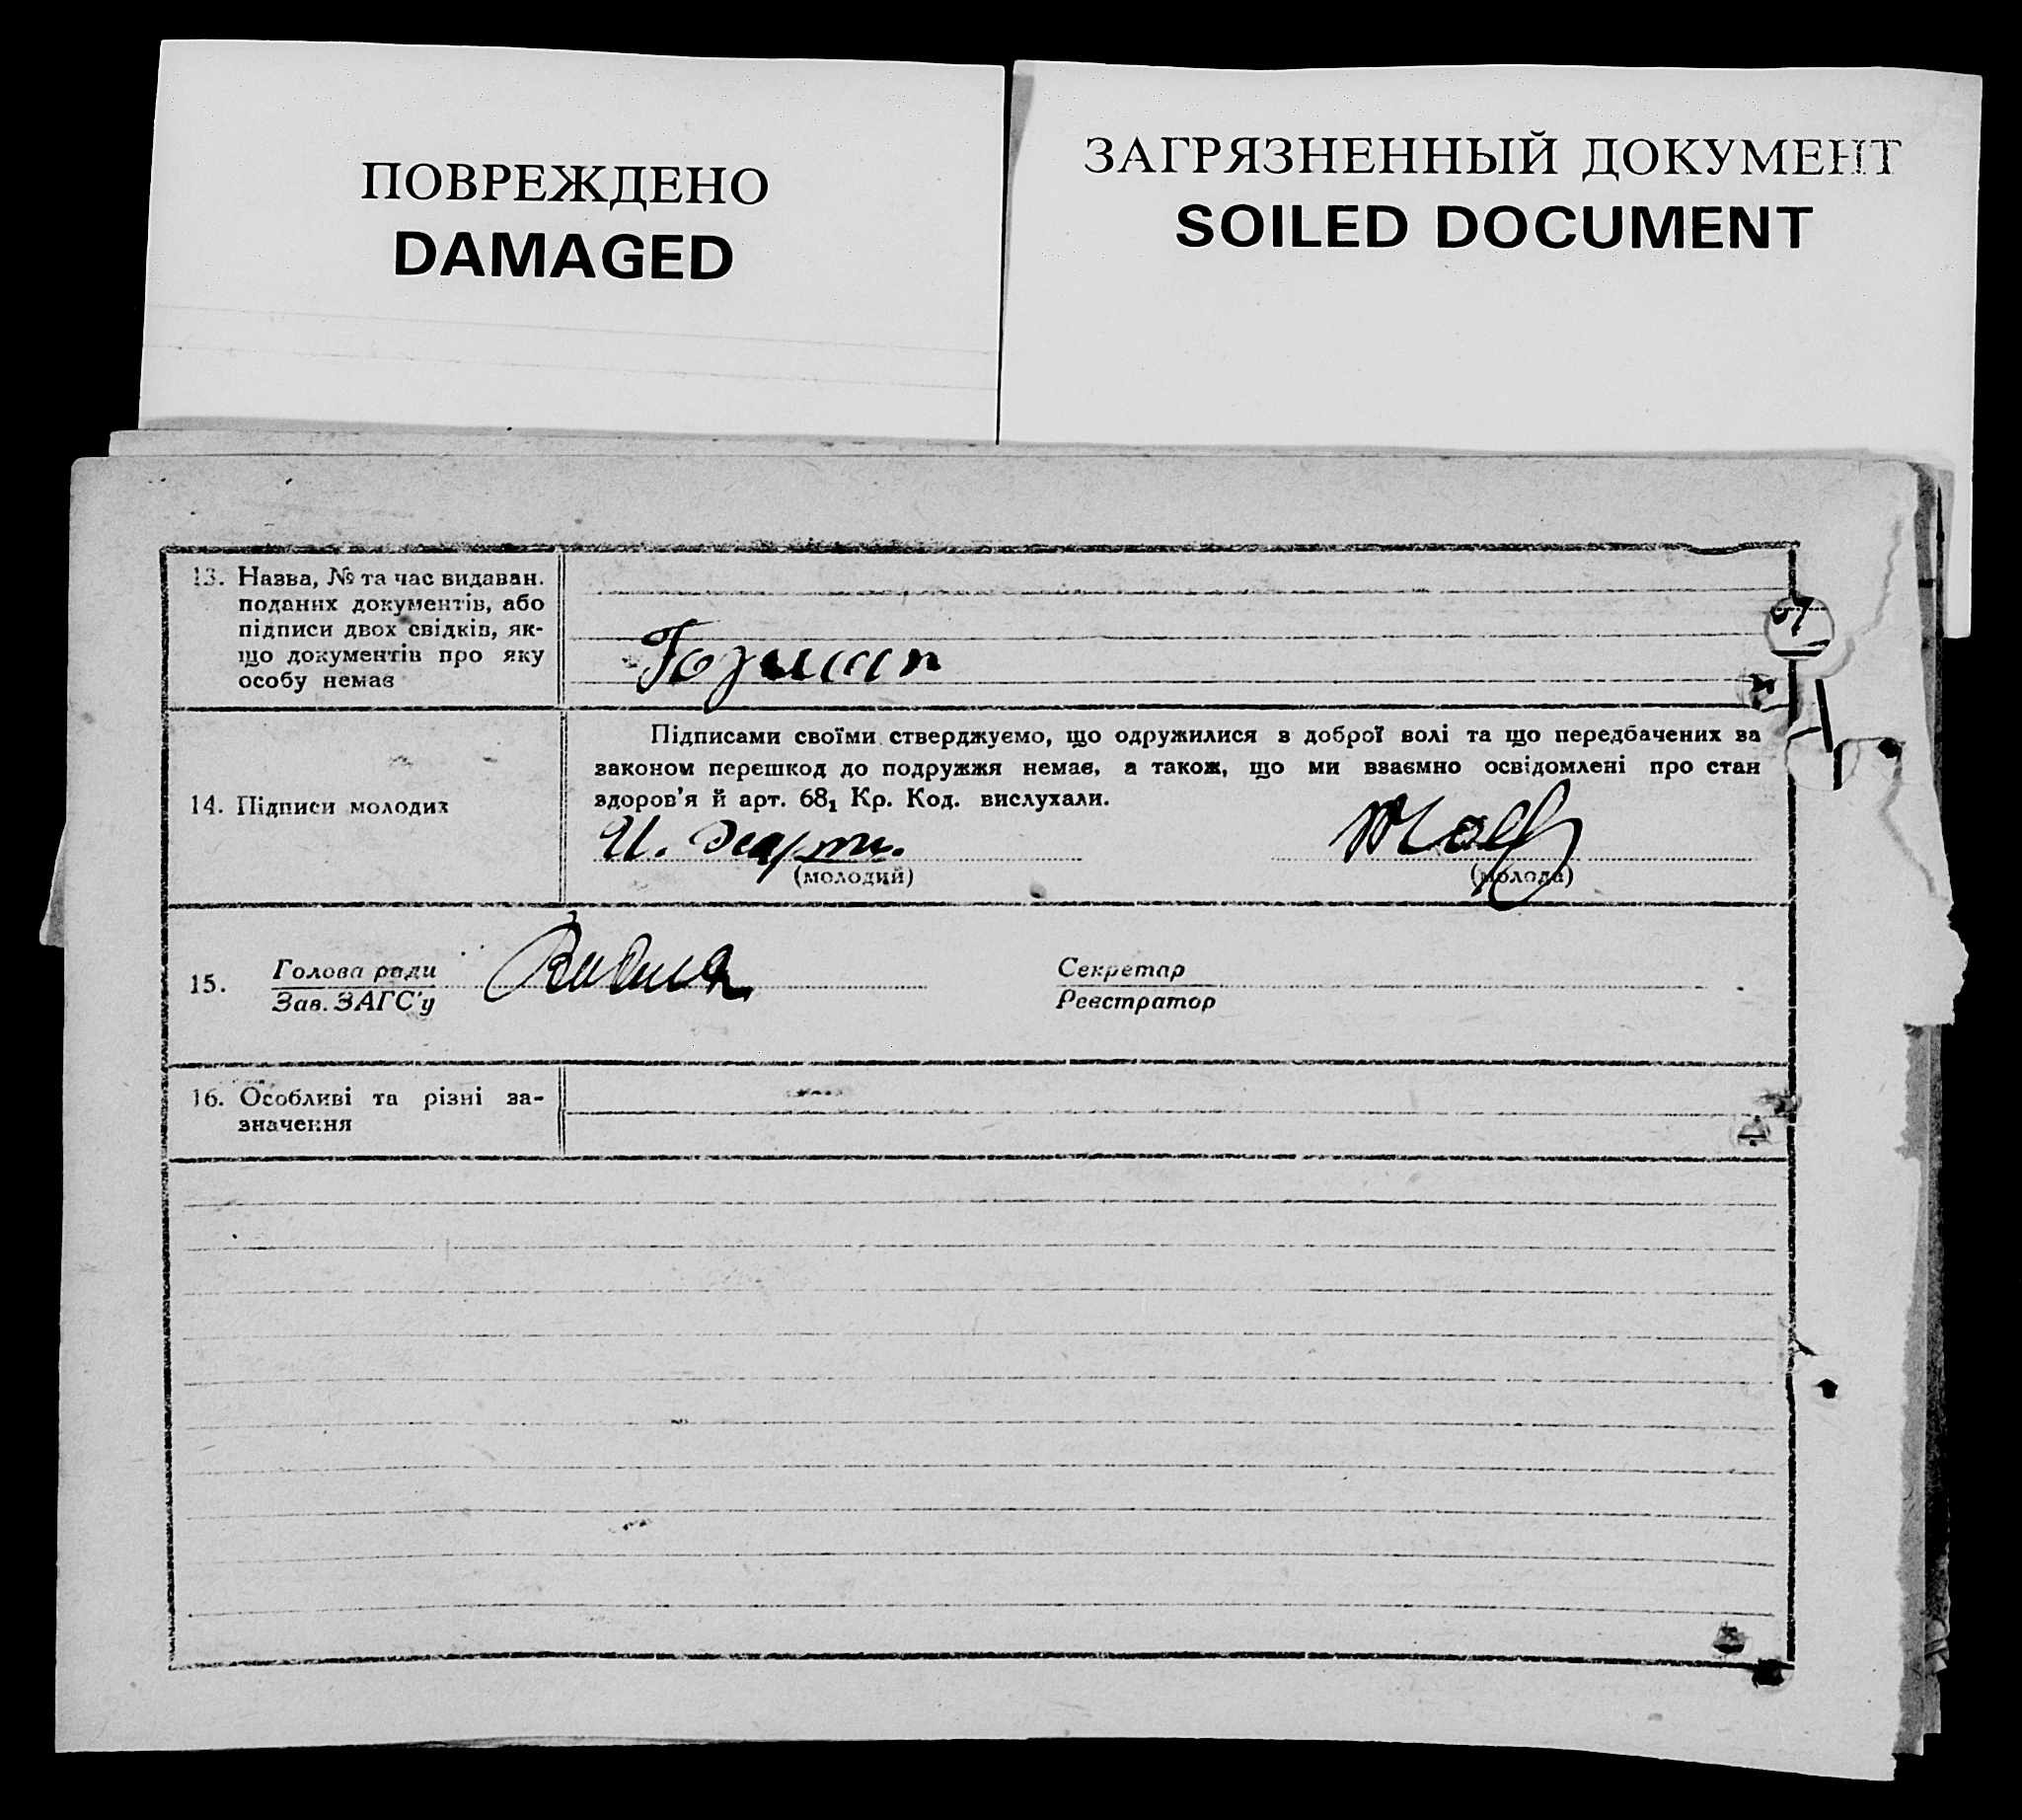 ПОВРЕЖДЕНО
DAMAGED
ЗАГРЯЗНЕННЫЙ ДОКУМЕНТ
SOILED DOCUMENT
13. Назва, № та час видаван.
поданих документів, або
підписи двох свідків, як-
що документів про яку
особу немає
14. Підписи молодих
Підписами своїми стверджуємо, що одружилися з доброї волі та що передбачених за
законом перешкод до подружжя немає, а також, що ми взаємно освідомлені про стан
здоров'я й арт. 68₁ Кр. Код. вислухали.
(молодий)
(молода)
15. Голова ради
Зав. ЗАГС'у
Секретар
Реєстратор
16. Особливі та різні за-
значення